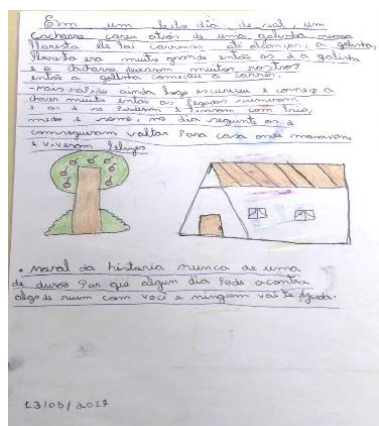 Em um belo dia de sol, um
cachorro correu atrás de uma galinha numa
floresta ele foi correndo até alcançar, a galinha,
floresta era muito grande então os 2 a galinha
e o
então a galinha começou a correr.
-mais rápido ainda logo escureceu e começo a
chover muito então as sumiram
e os 2 se perderam e ficaram com frio,
medo e fome, no dia seguinte os 2
conseguiram voltar para casa onde moravam
e viveram felizes
• moral da historia nunca de uma
de durão por que algum dia pode acontecer
algo de ruim com você e ninguem vai te ajuda.
13/05/2017